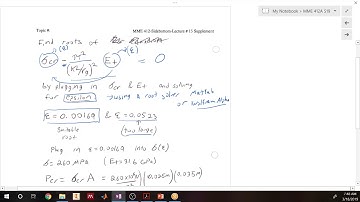 My Notebook > MME 412A S19
Topic 8:
MME 412/Siahmakoun-Lecture #15 Supplement
Find roots of
σcr(ε) - π² / (K²/rg)² Et(ε) = 0
by plugging in σcr & Et and solving
for epsilon → using a root solver Matlab
or Wolfram Alpha
ε = 0.00169 & ε = 0.0523
Suitable root
too large
Plug in ε = 0.00169 into σ(ε)
σ = 260 MPa (Et = 31.6 GPa)
Pcr = σcr A = (0.025m)(0.035m)
7:46 AM
3/18/2019